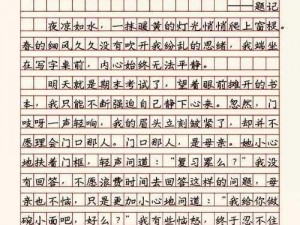 ——题记
夜凉如水，一抹暖黄的灯光悄悄爬上窗棂。
春的细风久久没有吹开我纷乱的思绪，我端坐
在写字桌前，内心始终无法平静。
明天就是期末考试了，望着眼前摊开的书
本，我只能不断强迫自己静下心来。忽然，门
吱呀一声轻响，我的眉头立刻皱紧了，却并不
愿理会门口那人。门口那人，是母亲。她小心
地扶着门框，轻声问道：“复习累么？”我没
有回答，不愿浪费时间去回答这样的问题，母
亲也不恼，只是更加小心地问道：“我给你做
碗小面吧，好么？”我有些恼怒，终于忍不住